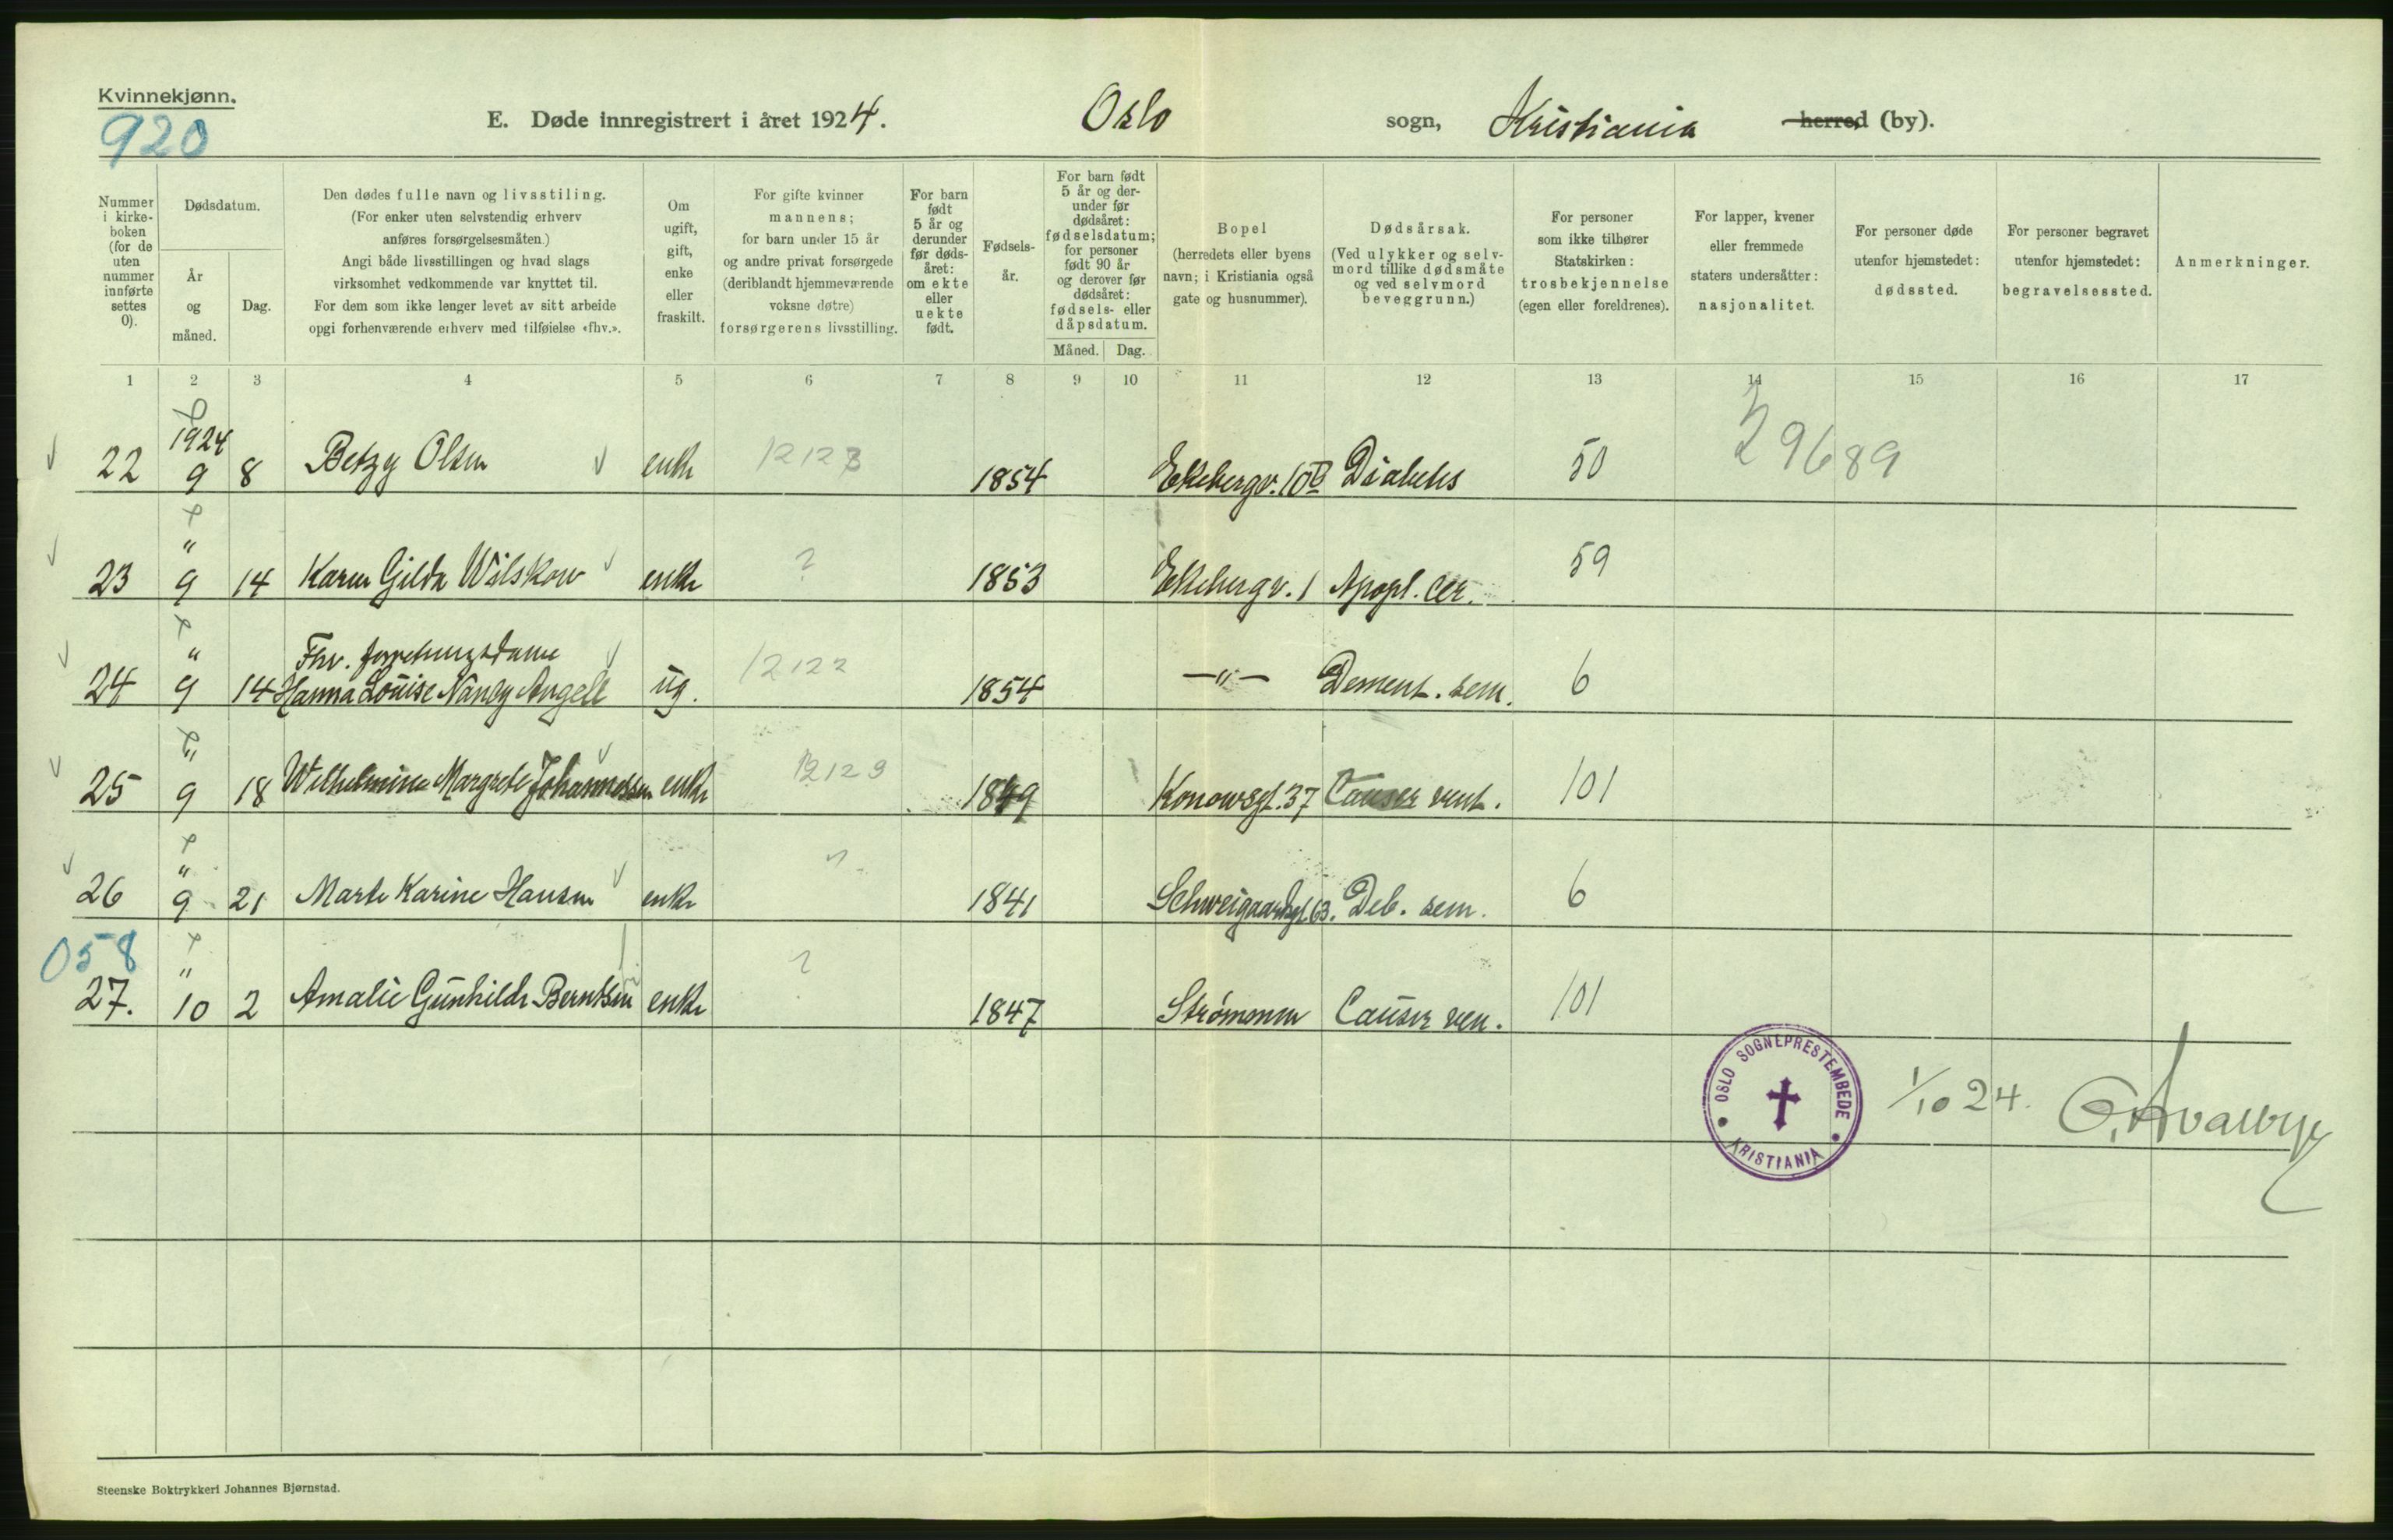 Kvinnekjønn.
920
E. Døde innregistrert i året 1924. Oslo sogn, Kristiania herred (by).
Nummer i kirkeboken (for de uten nummer innførte settes 0).
Dødsdatum.
År og måned.
Dag.
Den dødes fulle navn og livsstiling.
(For enker uten selvstendig erhverv
anføres forsørgelsesmåten.)
Angi både livsstillingen og hvad slags
virksomhet vedkommende var knyttet til.
For dem som ikke lenger levet av sitt arbeide
opgi forhenværende erhverv med tilføielse «fhv.».
Om ugift, gift, enke eller fraskilt.
For gifte kvinner
mannens;
for barn under 15 år
og andre privat forsørgede
(deriblandt hjemmeværende
voksne døtre)
forsørgerens livsstilling.
For barn født 5 år og derunder før dødsåret: om ekte eller uekte født.
Fødselsår.
For barn født 5 år og derunder før dødsåret: fødselsdatum; for personer født 90 år og derover før dødsåret: fødsels- eller dåpsdatum.
Måned. Dag.
Bopel
(herredets eller byens
navn; i Kristiania også
gate og husnummer).
Dødsårsak.
(Ved ulykker og selvmord tillike dødsmåte
og ved selvmord
beveggrunn.)
For personer
som ikke tilhører
Statskirken:
trosbekjennelse
(egen eller foreldrenes).
For lapper, kvener
eller fremmede
staters undersåtter:
nasjonalitet.
For personer døde
utenfor hjemstedet:
dødssted.
For personer begravet
utenfor hjemstedet:
begravelsessted.
Anmerkninger.
1 2 3 4 5 6 7 8 9 10 11 12 13 14 15 16 17
1924
22 9 8 Betzy Olsen enke 12123 1854 Ekebergv. 10B Diabetes 50 29689
"
23 9 14 Karen Gilda Wilskow enke ? 1853 Ekebergv. 1 Apopl. cer. 59
" Fhv. forretningsdame
24 9 14 Hanna Louise Nancy Angell ug. 12122 1854 —"— Dement. sen. 6
"
25 9 18 Wilhelmine Margrete Johannessen enke 12123 1849 Konowsgt. 37 Cancer vent. 101
"
26 9 21 Marte Karine Hansen enke ? 1841 Schweigaardsgt. 63. Deb. sen. 6
058 "
27. 10 2 Amalie Gunhilde Berntsen enke ? 1847 Strømmen Cancer ven. 101
OSLO SOGNEPRESTEMBEDE
KRISTIANIA
1/10 24.
Steenske Boktrykkeri Johannes Bjørnstad.